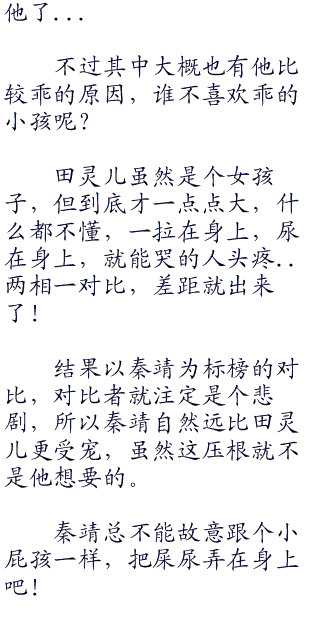 他了...
不过其中大概也有他比
较乖的原因，谁不喜欢乖的
小孩呢？
田灵儿虽然是个女孩
子，但到底才一点点大，什
么都不懂，一拉在身上，尿
在身上，就能哭的人头疼..
两相一对比，差距就出来
了！
结果以秦靖为标榜的对
比，对比者就注定是个悲
剧，所以秦靖自然远比田灵
儿更受宠，虽然这压根就不
是他想要的。
秦靖总不能故意跟个小
屁孩一样，把屎尿弄在身上
吧！